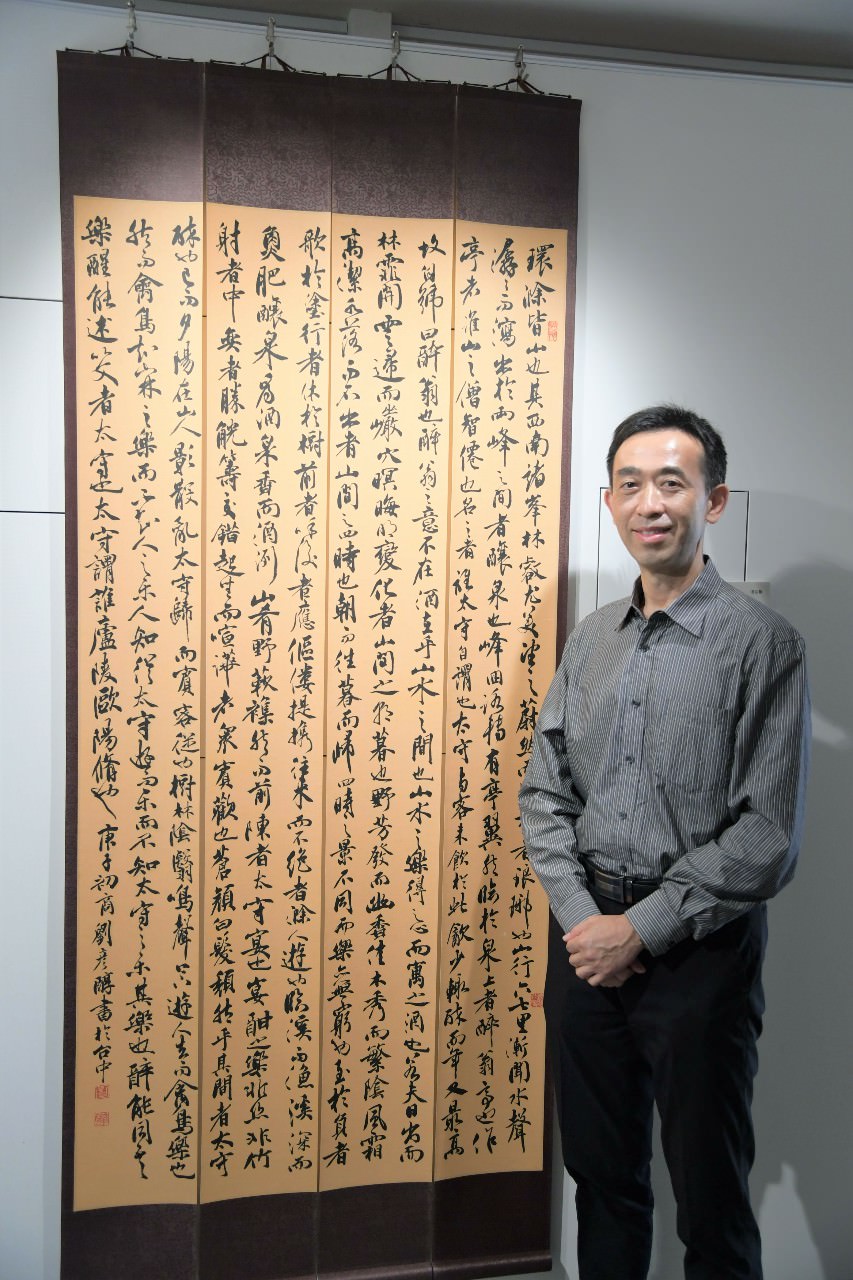 環滁皆山也其西南諸峯林壑尤美望之蔚然而者琅琊也山行六七里漸聞水聲
潺々而瀉出於兩峰之間者釀泉也峰回路轉有亭翼然臨於泉上者醉翁亭也作
亭者誰山之僧智僊也名之者誰太守自謂也太守與客來飲於此飲少輒醉而年又最高
故自號曰醉翁也醉翁之意不在酒在乎山水之間也山水之樂得之心而寓之酒也若夫日出而
林霏開雲歸而巖穴暝晦明變化者山間之朝暮也野芳發而幽香佳木秀而繁陰風霜
高潔水落而石出者山間之四時也朝而往暮而歸四時之景不同而樂亦無窮也至於負者
歌於塗行者休於樹前者呼後者應傴僂提攜往來而不絕者滁人遊也臨溪而漁溪深而
魚肥釀泉為酒泉香而酒洌山肴野蔌雜然而前陳者太守宴也宴酣之樂非絲非竹
射者中奕者勝觥籌交錯起坐而喧譁者眾賓歡也蒼顏白髮頹然乎其間者太守
醉也已而夕陽在山人影散亂太守歸而賓客從也樹林陰翳鳴聲上下遊人去而禽鳥樂也
然而禽鳥知山林之樂而不知人之樂人知從太守遊而樂而不知太守之樂其樂也醉能同其
樂醒能述以文者太守也太守謂誰廬陵歐陽脩也 庚子初商劉彥醇書於台中